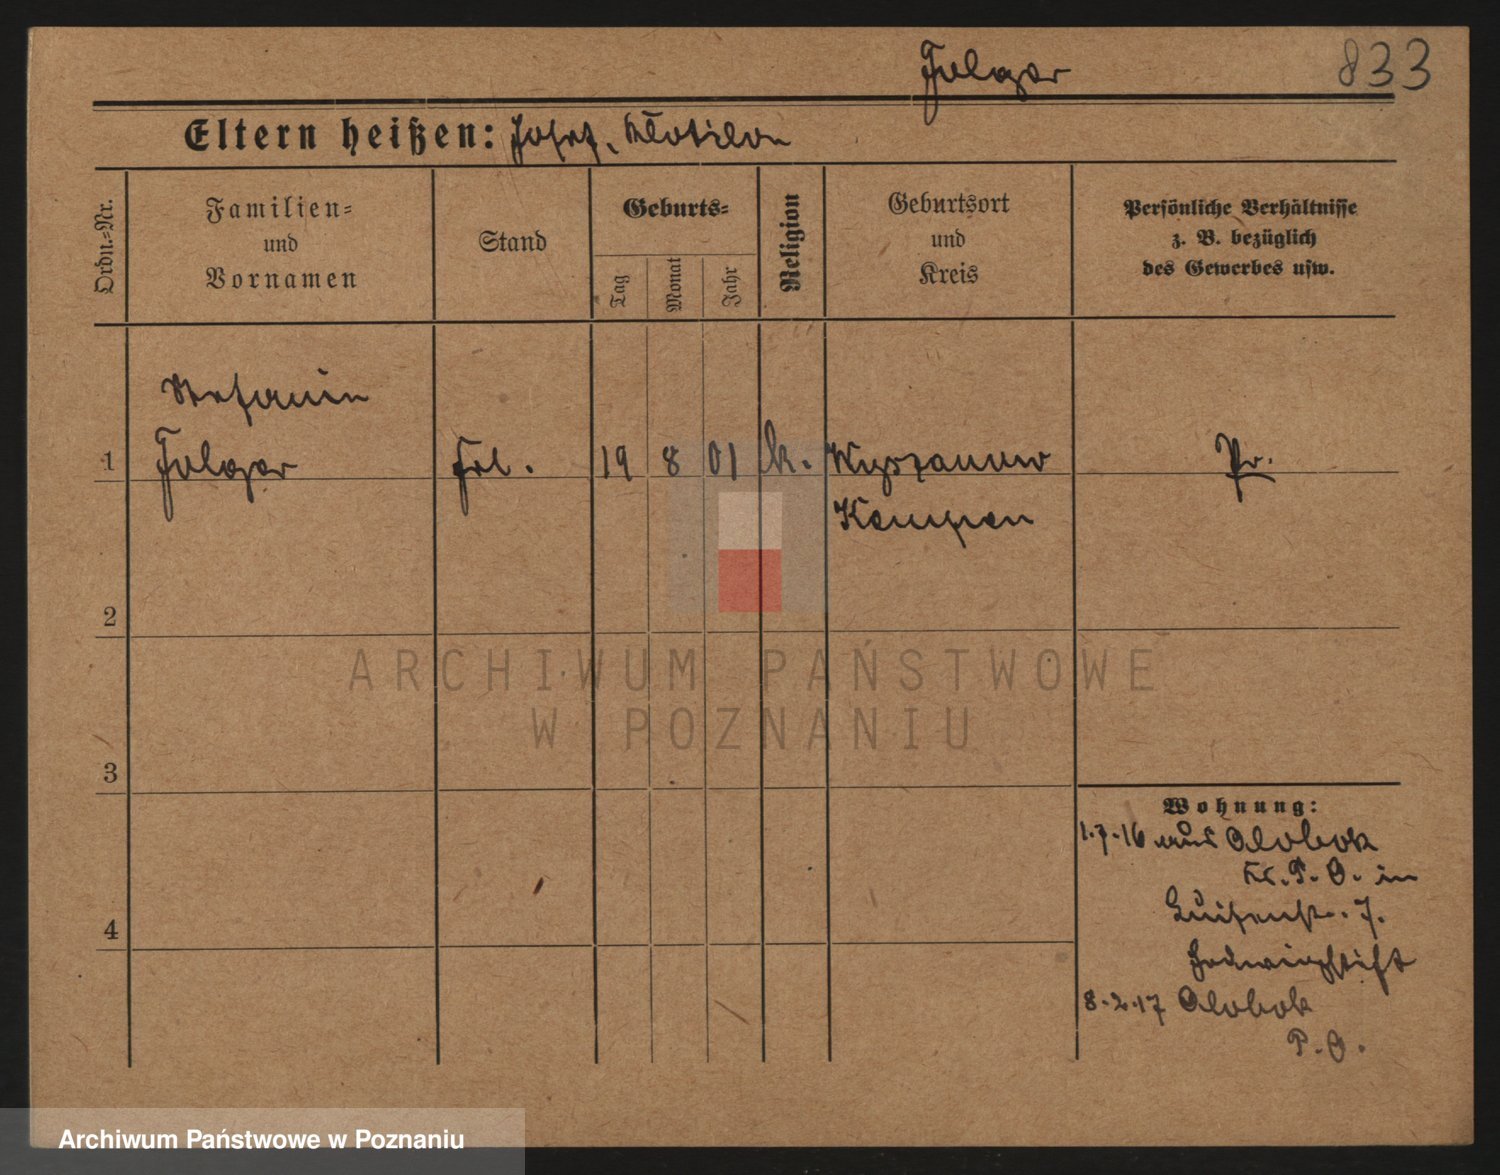 833
Eltern heißen: Josef, Klotilde
Ordn.-Nr.
Familien-
und
Vornamen
Stand
Geburts-
Tag
Monat
Jahr
Religion
Geburtsort
und
Kreis
Persönliche Verhältnisse
z. B. bezüglich
des Gewerbes usw.
Stefanie
1
Frl.
19
8
01
k.
Wyszanow
Pr.
Kempen
2
ARCHIWUM PAŃSTWOWE
W POZNANIU
3
Wohnung:
1.7.16 aus Olobok
Kr. P. O. in
Luisenstr. 7.
Hedwigstift
4
8.2.17 Olobok
P. O.
Archiwum Państwowe w Poznaniu